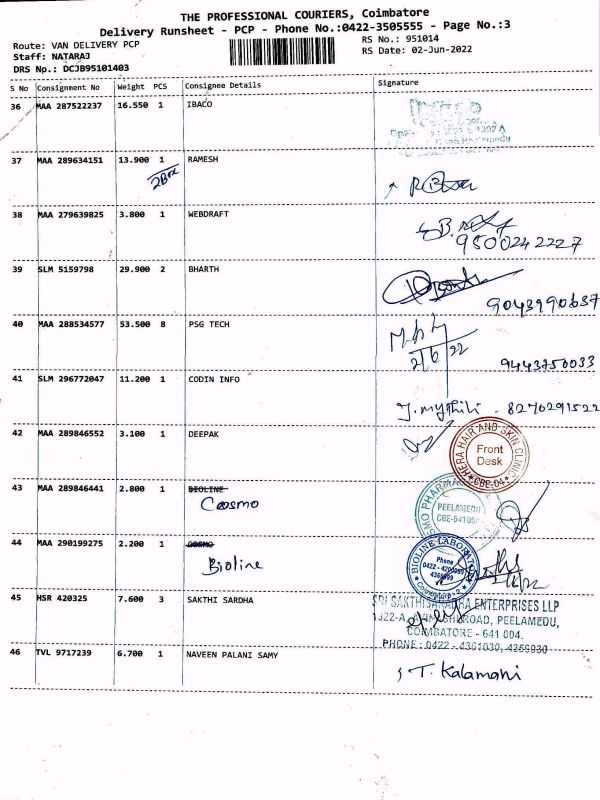 THE PROFESSIONAL COURIERS, Coimbatore
Delivery Runsheet - PCP - Phone No.:0422-3505555 - Page No.:3
Route: VAN DELIVERY PCP
RS No.: 951014
Staff: NATARAJ
RS Date: 02-Jun-2022
DRS Np.: DCJB95101403
S No Consignment No Weight PCS Consignee Details Signature
36 MAA 287522237 16.550 1 IBACO
37 MAA 289634151 13.900 1 RAMESH
2Box
38 MAA 279639825 3.800 1 WEBDRAFT
9500242227
39 SLM 5159798 29.900 2 BHARTH
9043990637
40 MAA 288534577 53.500 8 PSG TECH
2/6/22
9443750033
41 SLM 296772047 11.200 1 CODIN INFO
J. mythili - 8270291522
42 MAA 289846552 3.100 1 DEEPAK
HERA HAIR AND SKIN CLINIC
Front
Desk
CBE-04
43 MAA 289846441 2.800 1 BIOLINE
Cosmo
PEELAMEDU
44 MAA 290199275 2.200 1 COSMO
Bioline
BIOLINE LABORATORY
Phone
Coimbatore - 2
45 HSR 420325 7.600 3 SAKTHI SARDHA
SRI SAKTHI SARADHA ENTERPRISES LLP
ROAD, PEELAMEDU,
COIMBATORE - 641 004.
PHONE : 0422 - 4361030, 4259030
46 TVL 9717239 6.700 1 NAVEEN PALANI SAMY
T. Kalamani